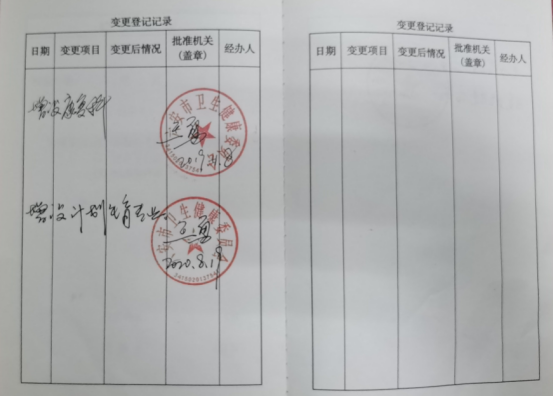 变更登记记录
日期 变更项目 变更后情况 批准机关(盖章) 经办人
增设康复科
增设计划生育专业。
安市卫生健康委员会
2020.8.19
变更登记记录
日期 变更项目 变更后情况 批准机关(盖章) 经办人